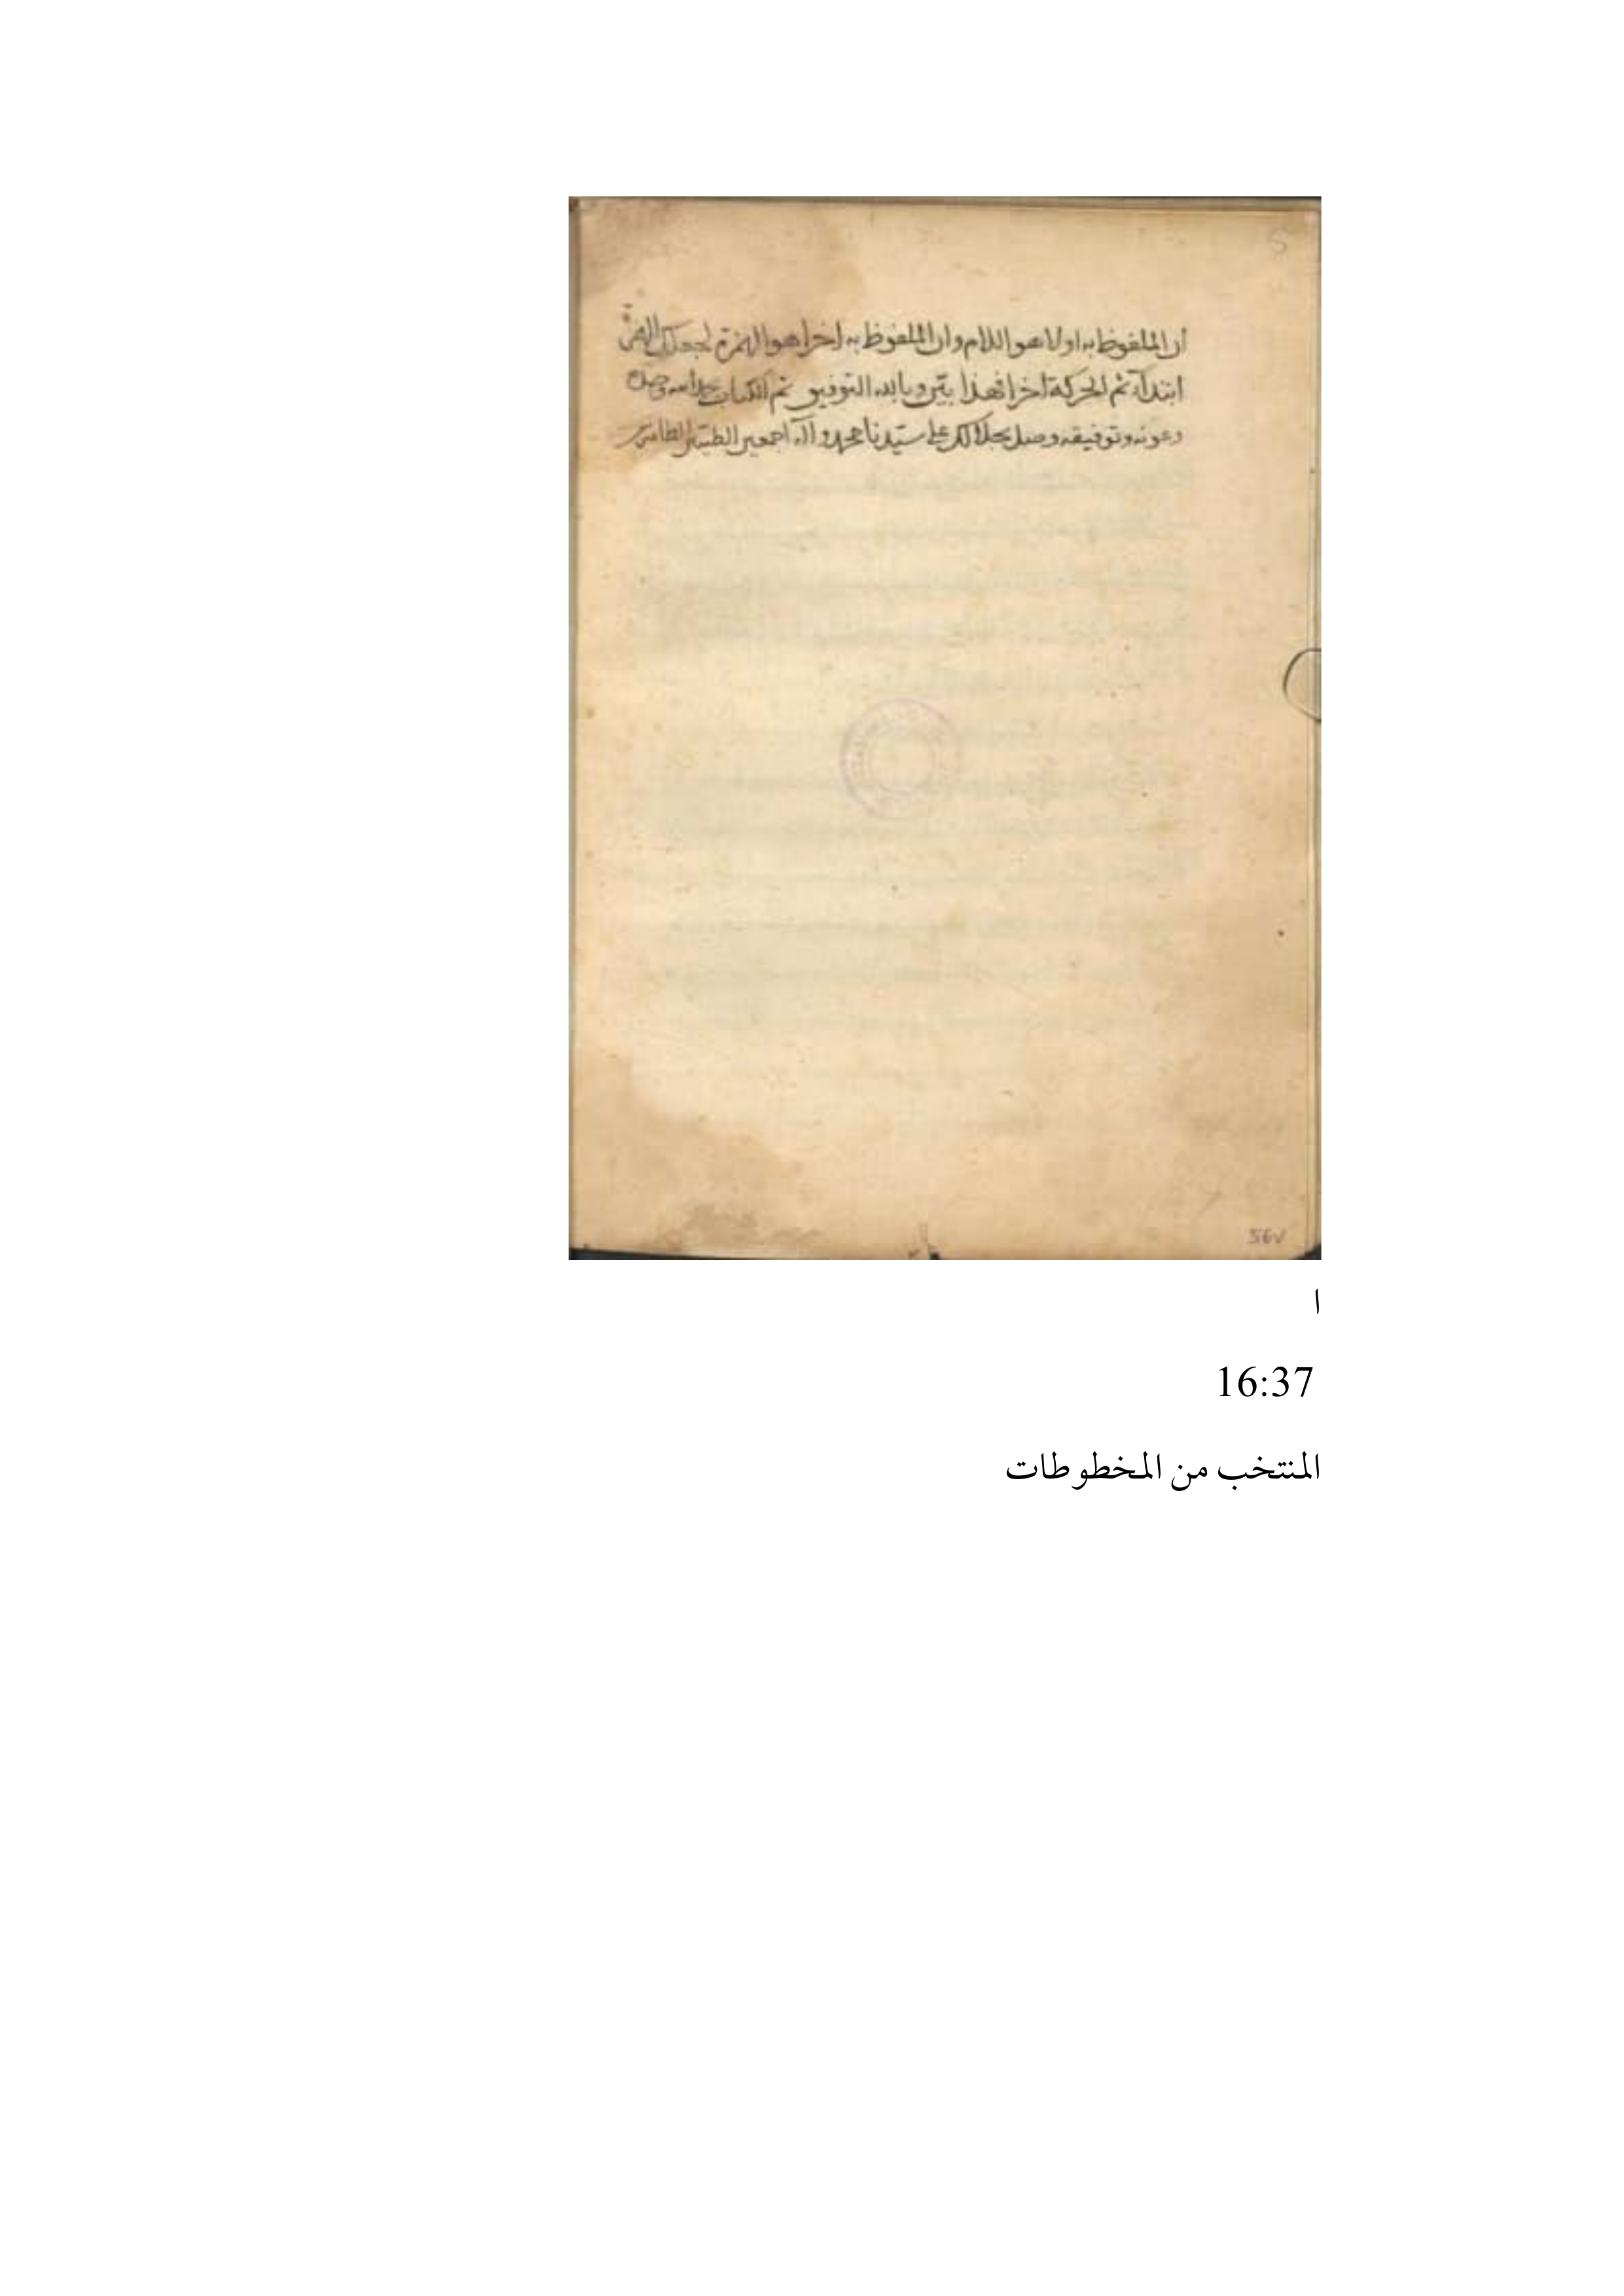 ان الملفوظ به اولا هو اللام وان الملفوظ به اخرا هو الهمزة لجعلك الهمزة
ابتدآء ثم الحركة اخرا فهذا بيّن وبالله التوفيق تم الكتاب بحمد الله
وعونه وتوفيقه وصل بجلالك على سيّدنا محمد وآله اجمعين الطيّبين الطاهرين
56v
ا
16:37
المنتخب من المخطوطات